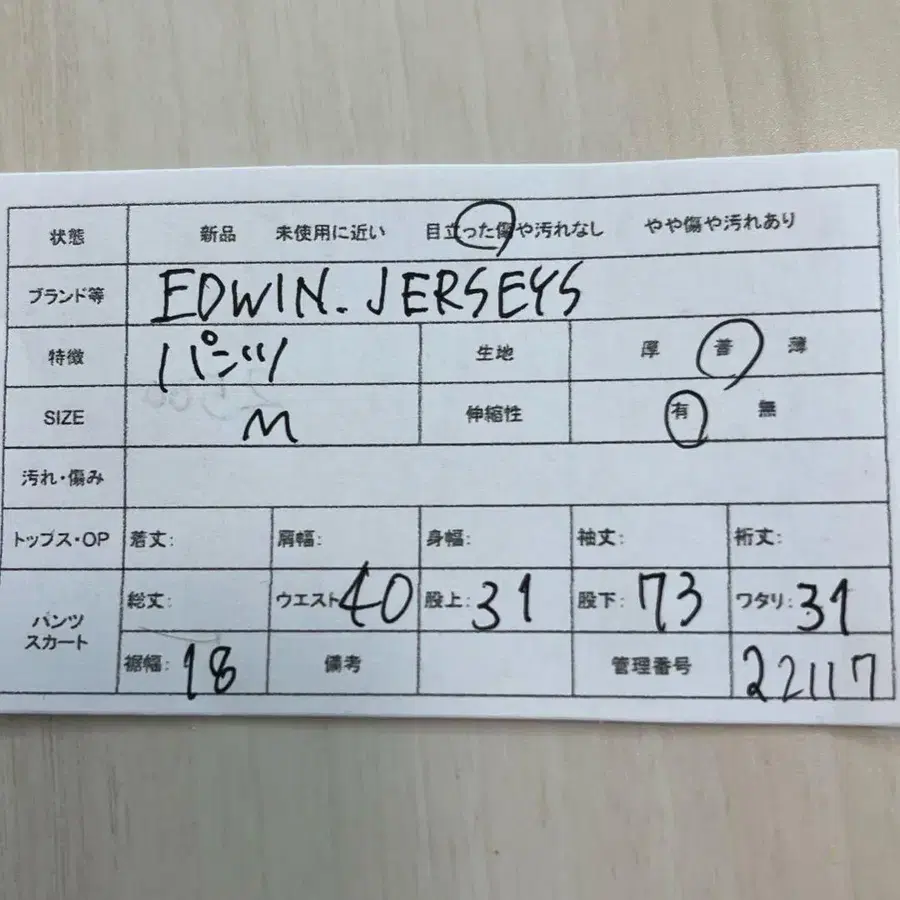 状態 新品 未使用に近い 目立った傷や汚れなし やや傷や汚れあり
ブランド等 EDWIN. JERSEYS
特徴 パンツ 生地 厚 普 薄
SIZE M 伸縮性 有 無
汚れ・傷み
トップス・OP 着丈: 肩幅: 身幅: 袖丈: 裄丈:
パンツ
スカート
総丈: ウエスト 40 股上: 31 股下: 73 ワタリ: 31
裾幅: 18 備考 管理番号 22117